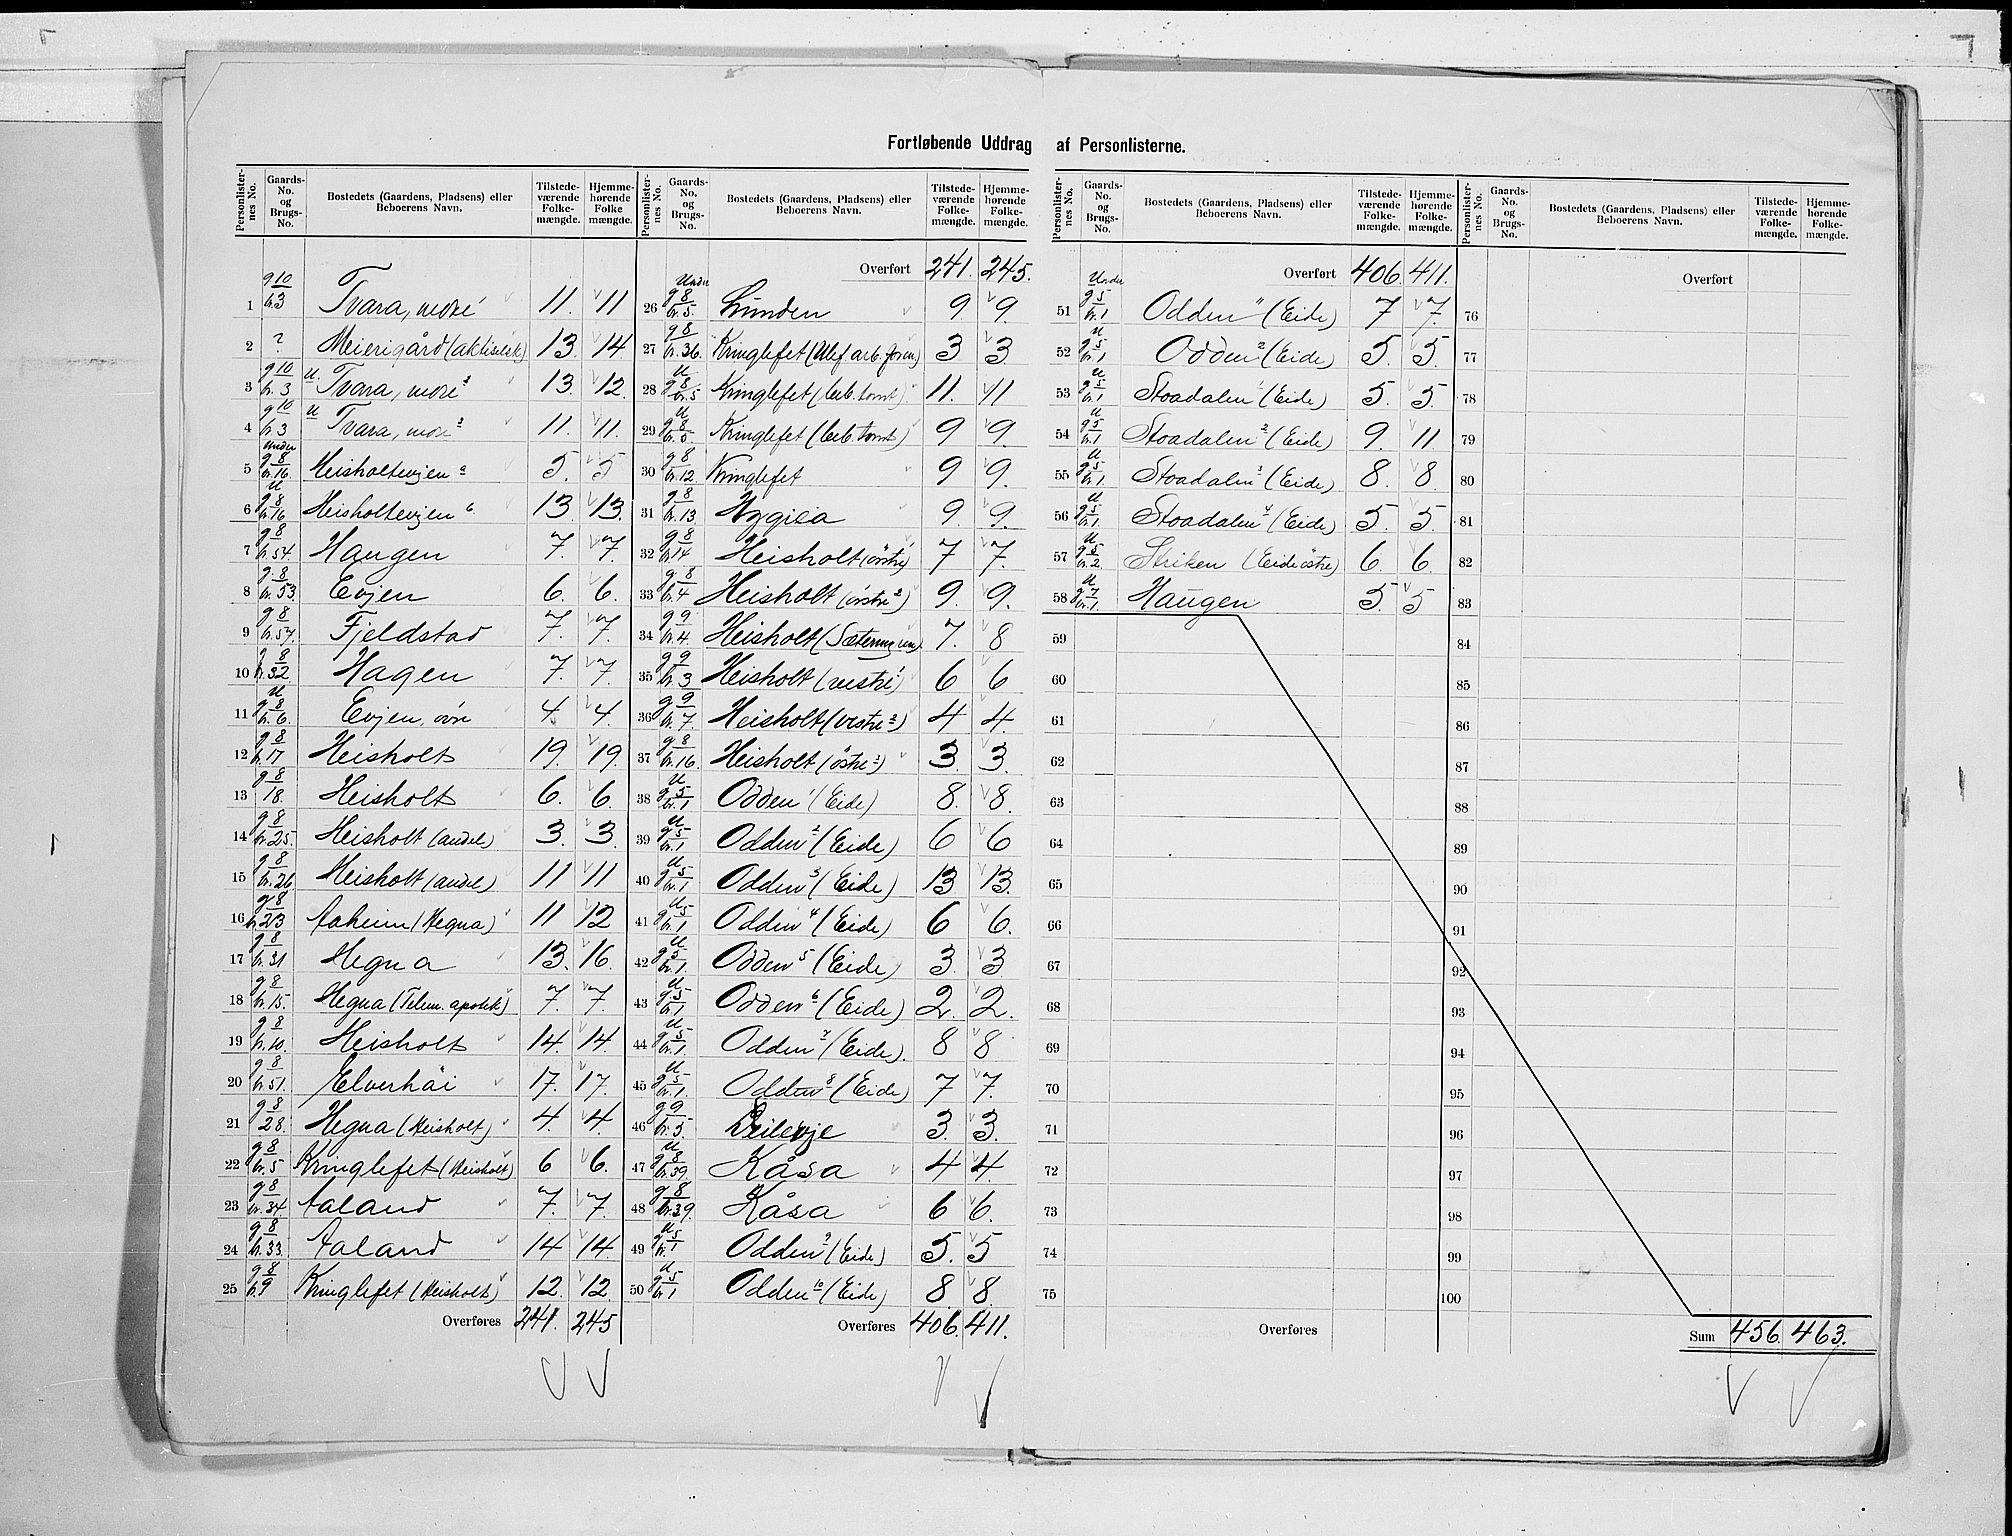 Fortløbende Uddrag af Personlisterne.
Personlisternes No. Gaards-No. og Brugs-No. Bostedets (Gaardens, Pladsens) eller Beboerens Navn. Tilstedeværende Folkemængde. Hjemmehørende Folkemængde.
1 g 10 br. 3 Tvara, nedre 1 11. 11
2 ? Meierigård (aktiselsk) 13. 14
3 g 10 br. 3 U. Tvara, nedre 2 13. 12.
4 g 10 br. 3 U Tvara, nedre 3 11. 11.
5 under g 8 br. 16 Heisholtevjen a 5. 5
6 U g 8 br. 16 Heisholtevjen b 13. 13.
7 g 8 br. 54. Haugen 7. 7.
8 g. 8 br. 53. Evjen 6. 6.
9 g 8 br. 57. Fjeldstad 7. 7.
10 g. 8 br. 32. Hagen 7. 7.
11 U g 8 br. 6. Evjen, övre 4. 4.
12 g 8 br. 17 Heisholt 19. 19.
13 g 8 18. Heisholt 6. 6.
14 g 8 br. 25. Heisholt (andel) 3. 3.
15 g 8 br. 26. Heisholt (andel) 11 11
16 g 8 br. 23 Aaheim (Hegna) 11 12
17 g 8 br. 31 Hegna 13. 16.
18 g 8 br. 15. Hegna (Telem. apotek) 7. 7.
19 g 8 br. 10. Heisholt 14. 14.
20 g 8 br. 51. Elverhöi 17. 17.
21 g 8 28. Hegna (Heisholt) 4. 4.
22 g 8 br. 5 Kringlefet (Heisholt) 6 6.
23 g 8 br. 34. Aaland 7. 7.
24 g 8 br. 33. Aaland 14 14.
25 g. 8 br. 9 Kringlefet (Heisholt) 12. 12.
Overføres 241. 245
Personlisternes No. Gaards-No. og Brugs-No. Bostedets (Gaardens, Pladsens) eller Beboerens Navn. Tilstedeværende Folkemængde. Hjemmehørende Folkemængde.
Overført 241. 245.
26 Under g 8 br. 5. Lunden 9 9.
27 g 8 br. 36. Kringlefet (Ulef. arb. foren) 3 3
28 U g 8 br. 5 Kringlefet 11. 11
29 U g 8 br. 5 Kringlefet 9 9.
30 g 8 br. 12 Kringlefet 9 9.
31 g 8 br. 13 Hygiea 9. 9.
32 g 8 br. 14 Heisholt (östre) 7 7.
33 g. 8 br. 4 Heisholt (östre 2) 9. 9.
34 g 9 br. 4. Heisholt 7. 8
35 g 9 br. 3 Heisholt (vestre 1) 6 6
36 g 9 br. 7. Heisholt (vestre 2) 4 4.
37 g 8 br. 16. Heisholt (östre 3) 3. 3.
38 U g 5 br. 1 Odden 1 (Eide) 8. 8.
39 U g 5 br. 1 Odden 2 (Eide) 6 6
40 U g 5 br. 1 Odden 3 (Eide) 13 13.
41 U g 5 br. 1 Odden 4 (Eide) 6 6.
42 U g 5 br. 1. Odden 5 (Eide) 3. 3
43 U g. 5 br. 1 Odden 6 (Eide) 2. 2.
44 U g 5 br. 1. Odden 7 (Eide) 8 8
45 U g 5 br. 1. Odden 8 (Eide) 7 7.
46 g 9 br. 5. 3. 3.
47 U g 8 br. 39. Kåsa 4 4.
48 g. 8 br. 39. Kåsa 6 6.
49 U g 5 br. 1 Odden 9 (Eide) 5. 5
50 U g 5 br. 1 Odden 10 (Eide) 8 8.
Overføres 406. 411.
Personlisternes No. Gaards-No. og Brugs-No. Bostedets (Gaardens, Pladsens) eller Beboerens Navn. Tilstedeværende Folkemængde. Hjemmehørende Folkemængde.
Overført 406. 411.
51 Under g 5 br. 1 Odden 11 (Eide) 7 7.
52 U g 5 br. 1 Odden 2 (Eide) 5. 5.
53 U g 5 br. 1 Stoadalen 1 (Eide) 5. 5.
54 U g 5 br. 1 Stoadalen 2 (Eide) 9. 11
55 U g 5 br. 1. Stoadalen 3 (Eide) 8. 8.
56 U g 5 br. 1. Stoadalen 4 (Eide) 5. 5.
57 U g 5 br. 2. Striken (Eide östre) 6 6.
58 U g 7 br. 1. Haugen 5. 5
59
60
61
62
63
64
65
66
67
68
69
70
71
72
73
74
75
Overføres
Personlisternes No. Gaards-No. og Brugs-No. Bostedets (Gaardens, Pladsens) eller Beboerens Navn. Tilstedeværende Folkemængde. Hjemmehørende Folkemængde.
Overført
76
77
78
79
80
81
82
83
84
85
86
87
88
89
90
91
92
93
94
95
96
97
98
99
100
Sum 456. 463.